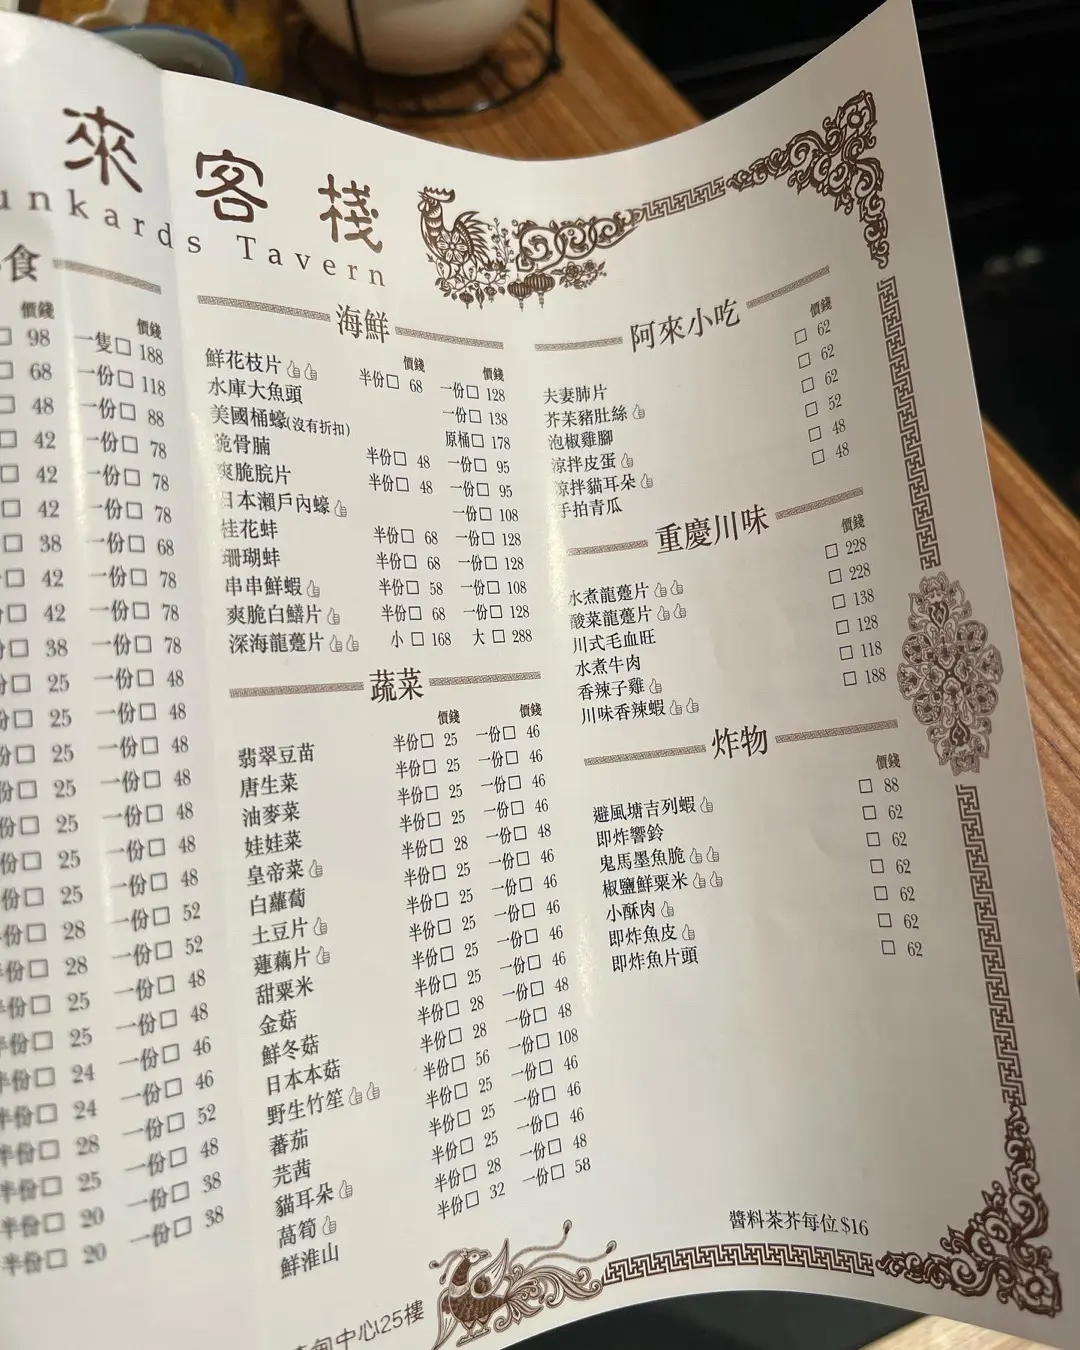 來客棧
unkards Tavern
食
價錢 價錢
□ 98 一隻□ 188
□ 68 一份□ 118
□ 48 一份□ 88
□ 42 一份□ 78
□ 42 一份□ 78
□ 42 一份□ 78
□ 38 一份□ 68
□ 42 一份□ 78
份□ 42 一份□ 78
份□ 38 一份□ 78
份□ 25 一份□ 48
份□ 25 一份□ 48
份□ 25 一份□ 48
份□ 25 一份□ 48
份□ 25 一份□ 48
份□ 25 一份□ 48
份□ 25 一份□ 48
半份□ 28 一份□ 52
半份□ 28 一份□ 52
半份□ 25 一份□ 48
半份□ 25 一份□ 48
半份□ 24 一份□ 46
半份□ 24 一份□ 46
半份□ 28 一份□ 52
半份□ 25 一份□ 48
半份□ 20 一份□ 38
半份□ 20 一份□ 38
海鮮
價錢 價錢
鮮花枝片 半份□ 68 一份□ 128
水庫大魚頭 一份□ 138
美國桶蠔(沒有折扣) 原桶□ 178
脆骨腩 半份□ 48 一份□ 95
爽脆脘片 半份□ 48 一份□ 95
日本瀨戶內蠔 一份□ 108
桂花蚌 半份□ 68 一份□ 128
珊瑚蚌 半份□ 68 一份□ 128
串串鮮蝦 半份□ 58 一份□ 108
爽脆白鱔片 半份□ 68 一份□ 128
深海龍躉片 小□ 168 大□ 288
蔬菜
價錢 價錢
翡翠豆苗 半份□ 25 一份□ 46
唐生菜 半份□ 25 一份□ 46
油麥菜 半份□ 25 一份□ 46
娃娃菜 半份□ 25 一份□ 46
皇帝菜 半份□ 28 一份□ 48
白蘿蔔 半份□ 25 一份□ 46
土豆片 半份□ 25 一份□ 46
蓮藕片 半份□ 25 一份□ 46
甜粟米 半份□ 25 一份□ 46
金菇 半份□ 25 一份□ 46
鮮冬菇 半份□ 28 一份□ 48
日本本菇 半份□ 28 一份□ 48
野生竹笙 半份□ 56 一份□ 108
蕃茄 半份□ 25 一份□ 46
芫茜 半份□ 25 一份□ 46
貓耳朵 半份□ 25 一份□ 46
萵筍 半份□ 28 一份□ 48
鮮淮山 半份□ 32 一份□ 58
阿來小吃
價錢
夫妻肺片 □ 62
芥茉豬肚絲 □ 62
泡椒雞腳 □ 62
涼拌皮蛋 □ 52
涼拌貓耳朵 □ 48
手拍青瓜 □ 48
重慶川味
價錢
水煮龍躉片 □ 228
酸菜龍躉片 □ 228
川式毛血旺 □ 138
水煮牛肉 □ 128
香辣子雞 □ 118
川味香辣蝦 □ 188
炸物
價錢
避風塘吉列蝦 □ 88
即炸響鈴 □ 62
鬼馬墨魚脆 □ 62
椒鹽鮮粟米 □ 62
小酥肉 □ 62
即炸魚皮 □ 62
即炸魚片頭 □ 62
醬料茶芥每位$16
中心25樓